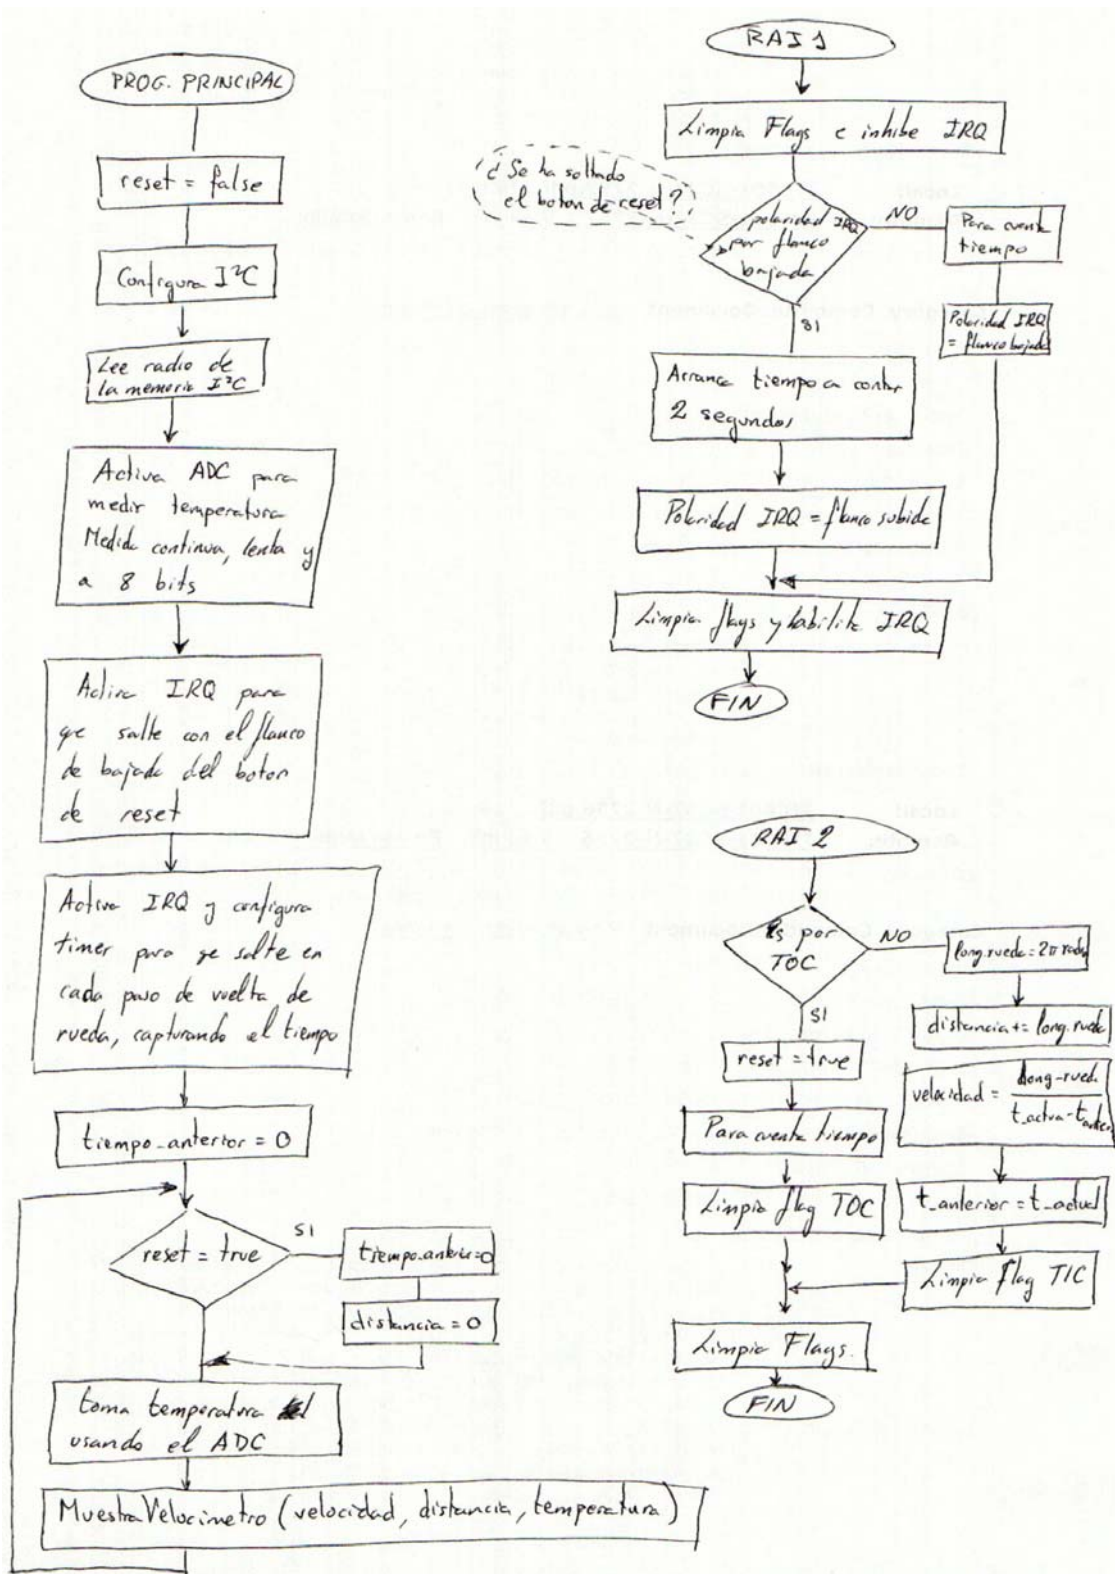 PROG. PRINCIPAL
reset = false
Configura I²C
Lee radio de
la memoria I²C
Activa ADC para
medir temperatura
Medida continua, lenta y
a 8 bits
Activa IRQ para
qe salte con el flanco
de bajada del boton
de reset
Activa IRQ y configura
timer para qe salte en
cada paso de vuelta de
rueda, capturando el tiempo
tiempo_anterior = 0
reset = true
SI
tiempo_anterior=0
distancia = 0
toma temperatura
usando el ADC
MuestraVelocimetro (velocidad, distancia, temperatura)
RAI 1
Limpia Flags e inhibe IRQ
¿Se ha soltado
el boton de reset?
polaridad IRQ
por flanco
bajada
NO
Para cuenta
tiempo
Polaridad IRQ
= flanco bajada
SI
Arranca tiempo a contar
2 segundos
Polaridad IRQ = flanco subida
Limpia flags y habilita IRQ
FIN
RAI 2
Es por
TOC
NO
long.rueda = 2π radio
distancia += long.rueda
velocidad = long_rueda
t_actua - t_anter
t_anterior = t_actual
Limpia flag TIC
SI
reset = true
Para cuenta tiempo
Limpia flag TOC
Limpia Flags.
FIN